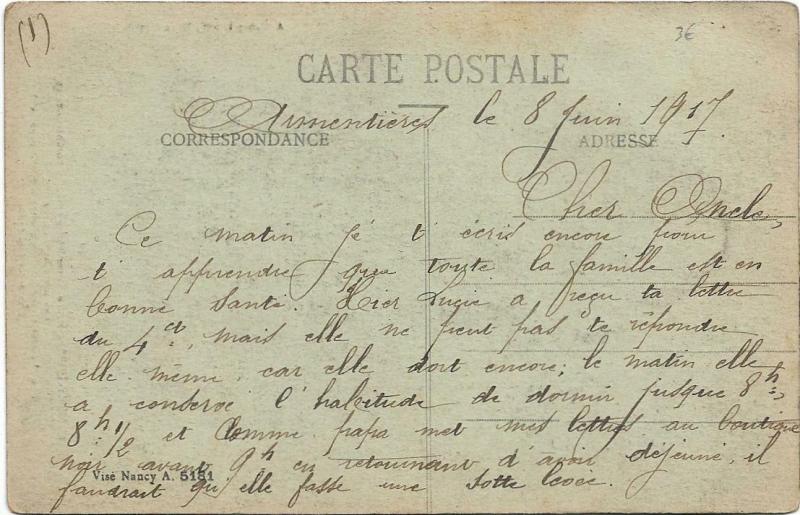 (1)
3€
CARTE POSTALE
Armentières le 8 Juin 1917.
CORRESPONDANCE
ADRESSE
Cher Oncle,
Ce matin je t'écris encore pour
t'apprendre que toute la famille est en
bonne santé. Hier Lucie a reçu ta lettre
du 4 ct, mais elle ne peut pas te répondre
elle même, car elle dort encore; le matin elle
a conservé l'habitude de dormir jusque 8h,
8h 1/2 et comme papa met mes lettres au
noir avant 9h en retournant d'avoir déjeuné, il
faudrait qu'elle fasse une sotte
Visé Nancy A. 5151